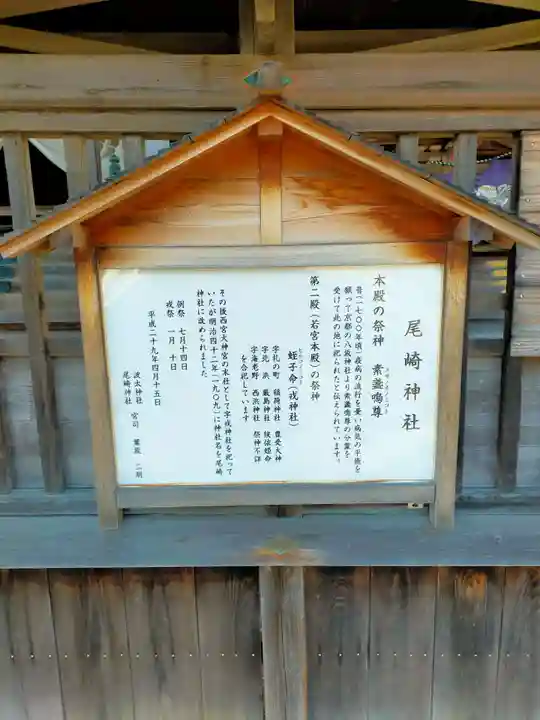 尾崎神社
本殿の祭神　素盞嗚尊
昔(一七〇〇年頃)疫病の流行を憂い病気の平癒を
願って京都の八坂神社より素盞嗚尊の分霊を
受けて此の地に祀られたと伝えられています。
第二殿(若宮本殿)の祭神
蛭子命(戎神社)
字礼の町　稲荷神社　豊受大神
字北浜　厳島神社　候依姫命
字海老野　西浜神社　祭神不詳
を合祀しています
その後西宮大神宮の末社として字戎神社を祀って
いたが明治四十二年(一九〇九)に神社名を尾崎
神社に改められました
例祭　七月十四日
戎祭　一月十日
平成二十九年四月十五日
波太神社
尾崎神社　宮司